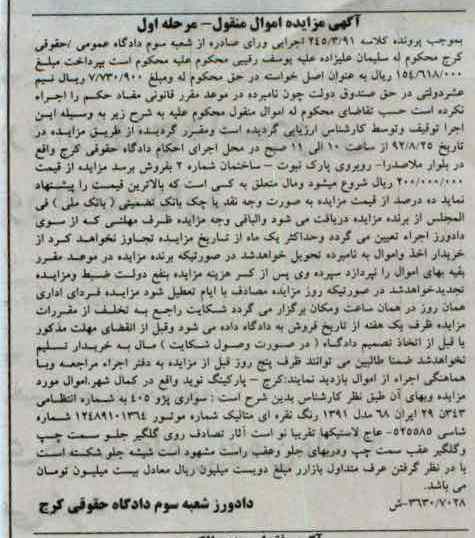 آگهی مزایده اموال منقول - مرحله اول
بموجب پرونده کلاسه ۲۴۵/۳/۹۱ اجرایی ورای صادره از شعبه سوم دادگاه عمومی /حقوقی
کرج محکوم له سلیمان علیزاده علیه یوسف رقیبی محکوم علیه محکوم است بپرداخت مبلغ
۱۵۴/۶۱۸/۰۰۰ ریال به عنوان اصل خواسته در حق محکوم له ومبلغ ۷/۷۳۰/۹۰۰ ریال نیم
عشردولتی در حق صندوق دولت چون نامبرده در موعد مقرر قانونی مفاد حکم را اجراء
نکرده است حسب تقاضای محکوم له اموال منقول محکوم علیه به شرح زیر به وسیله این
اجرا توقیف وتوسط کارشناس ارزیابی گردیده است ومقرر گردیده از طریق مزایده در
تاریخ ۹۲/۸/۲۵ از ساعت ۱۰ الی ۱۱ صبح در محل اجرای احکام دادگاه حقوقی کرج واقع
در بلوار ملاصدرا- روبروی پارک نبوت - ساختمان شماره ۲ بفروش برسد مزایده از قیمت
۲۰۰/۰۰۰/۰۰۰ ریال شروع میشود ومال متعلق به کسی است که بالاترین قیمت را پیشنهاد
نماید ده درصد از قیمت مزایده به صورت وجه نقد یا چک بانک تضمینی ( بانک ملی ) فی
المجلس از برنده مزایده دریافت می شود والباقی وجه مزایده ظرف مهلتی که از سوی
دادورز اجراء تعیین می گردد وحداکثر یک ماه از تاریخ مزایده تجاوز نخواهد کرد از
خریدار اخذ واموال به نامبرده تحویل خواهدشد در صورتیکه برنده مزایده در موعد مقرر
بقیه بهای اموال را نپردازد سپرده وی پس از کسر هزینه مزایده بنفع دولت ضبط ومزایده
تجدیدخواهدشد در صورتیکه روز مزایده مصادف با ایام تعطیل شود مزایده فردای اداری
همان روز در همان ساعت ومکان برگزار می گردد شکایت راجع به تخلف از مقررات
مزایده ظرف یک هفته از تاریخ فروش به دادگاه داده می شود وقبل از انقضای مهلت مذکور
یا قبل از اتخاذ تصمیم دادگاه ( در صورت وصول شکایت ) مال به خریدار تسلیم
نخواهدشد ضمنا طالبین می توانند ظرف پنج روز قبل از مزایده به دفتر اجراء مراجعه وبا
هماهنگی اجراء از اموال بازدید نمایند:کرج - پارکینگ نوید واقع در کمال شهر.اموال مورد
مزایده وبهای آن طبق نظر کارشناس بدین شرح است : سواری پژو ۴۰۵ به شماره انتظامی
۵۳۴۳ ۲۹ ایران ۶۸ مدل ۱۳۹۱ رنگ نقره ای متالیک شماره موتور ۱۲۴۸۹۱۰۱۳۶۴ شماره
شاسی ۵۲۵۵۸۵- عاج لاستیکها تقریبا نو است آثار تصادف روی گلگیر جلو سمت چپ
وگلگیر عقب سمت چپ ودربهای جلو وعقب راست مشهود است شیشه جلو شکسته است
با در نظر گرفتن عرف متداول بازارر مبلغ دویست میلیون ریال معادل بیست میلیون تومان
می باشد.
۳۶۳۰/۷۰۲۸-ش
دادورز شعبه سوم دادگاه حقوقی کرج